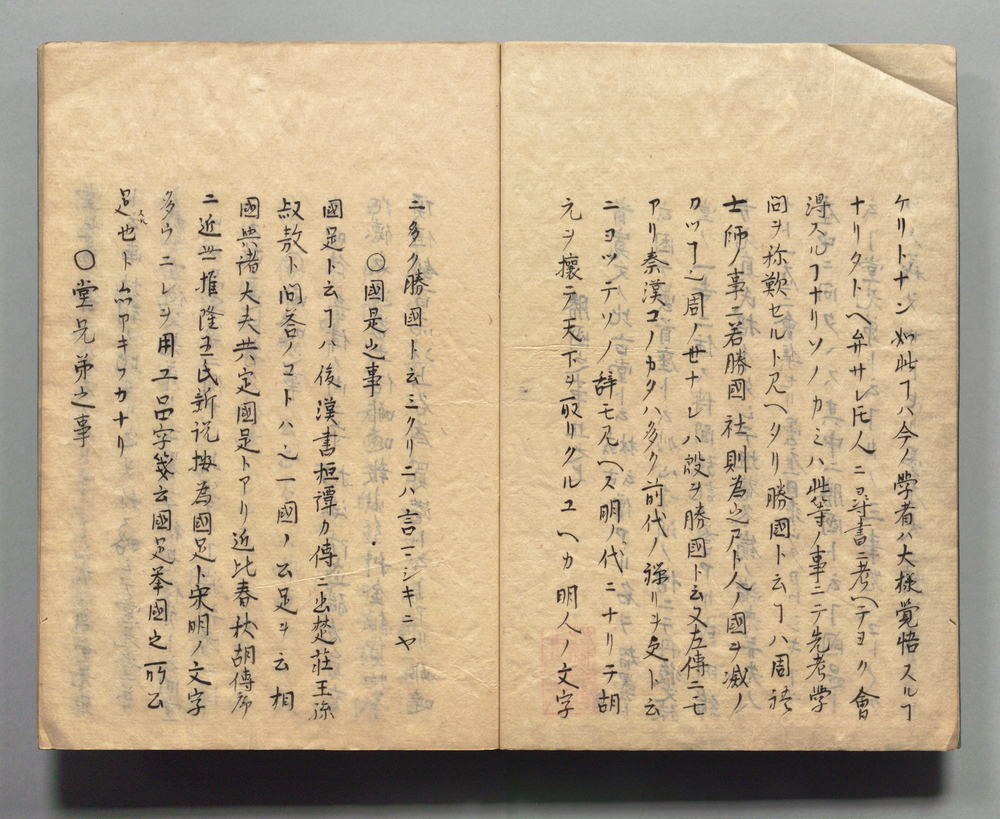 ケリトナン如此ヿハ今ノ学者ハ大様覚悟スルヿ
ナリタトヘ弁サレ𪜈人ニヨリ尋書ニ考ヘテヨク會
得スルヿナリソノカミハ此等ノ事ニテ先考学
問ヲ称歎セルト見ヘタリ勝國ト云ヿハ周禮
士師ノ事ニ若勝國社則為之尸ト人ノ國ヲ滅ノ
カツヿ也周ノ世ナレハ殷ヲ勝國ト云又左傳ニモ
アリ秦漢コノカタハ多ク前代ノ禅リヲ受ト云
ニヨツテソノ辞モ見ヘス明ノ代ニナリテ胡
元ヲ攘テ天下ヲ取リタルユヘカ明人ノ文字
ニ多ク勝國ト云ミタリニハ言マシキニヤ
〇國是之事
國是ト云ヿハ後漢書桓譚カ傳ニ出楚莊王孫
叔敖ト問答ノコトハ也一國ノ公是ヲ云相
國與諸大夫共定國是トアリ近比春秋胡傳序
ニ近世推隆王氏新説按為國是ト宋明ノ文字
多ウニレヲ用ユ品字箋云國是舉國之所公
是也ト
〇堂兄弟之事